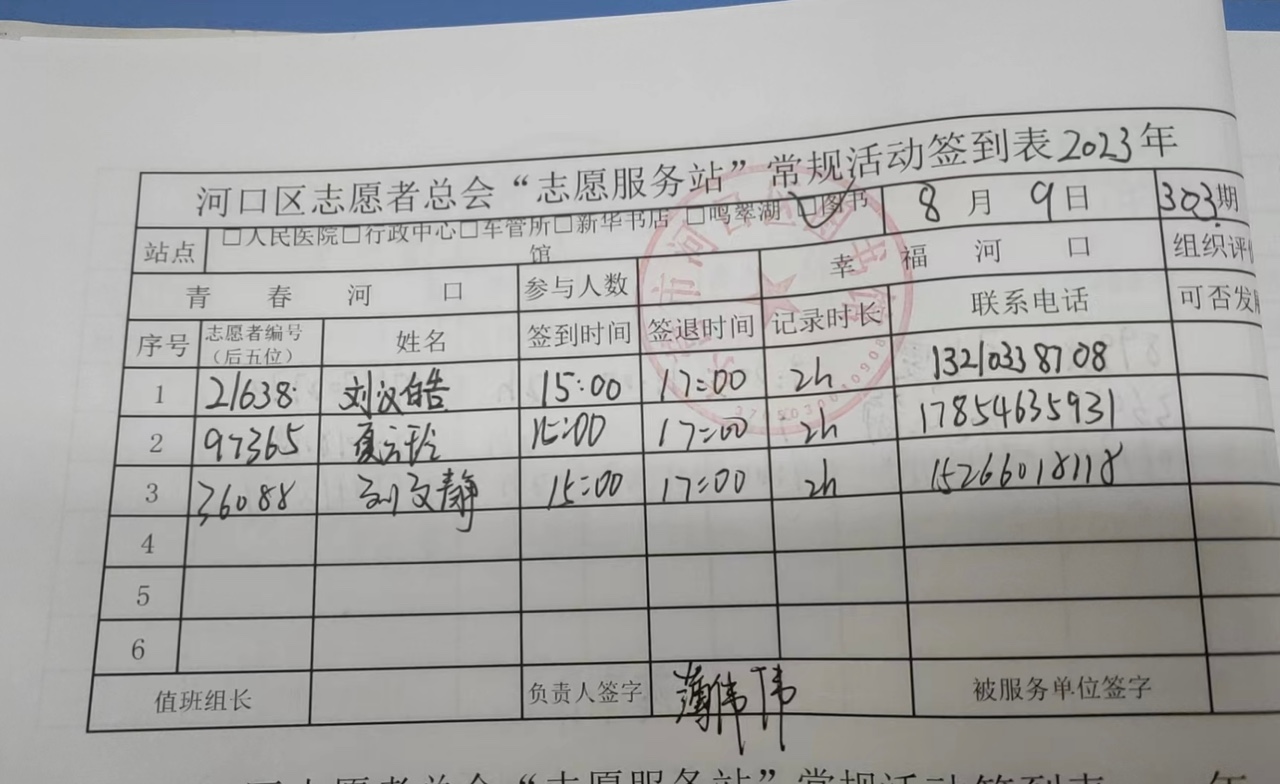 河口区志愿者总会“志愿服务站”常规活动签到表2023年
站点 □人民医院□行政中心□车管所□新华书店 □鸣翠湖 □图书馆 8月9日 303期
青春河口 参与人数 幸福河口 组织评
序号 志愿者编号（后五位） 姓名 签到时间 签退时间 记录时长 联系电话 可否发
1 21638 刘汶皓 15:00 17:00 2h 13210338708
2 97365 15:00 17:00 2h 17854635931
3 36088 刘文静 15:00 17:00 2h 15266018118
4
5
6
值班组长 负责人签字 薄伟伟 被服务单位签字
志愿者总会“志愿服务站”常规活动签到表 年